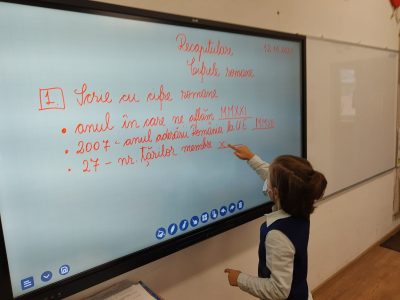 Recapitulare 12.11.2021
Cifrele romane
1. Scrie cu cifre romane
• anul în care ne aflăm MMXXI
• 2007 - anul aderării României la U.E. MMVII
• 27 - nr. țărilor membre X